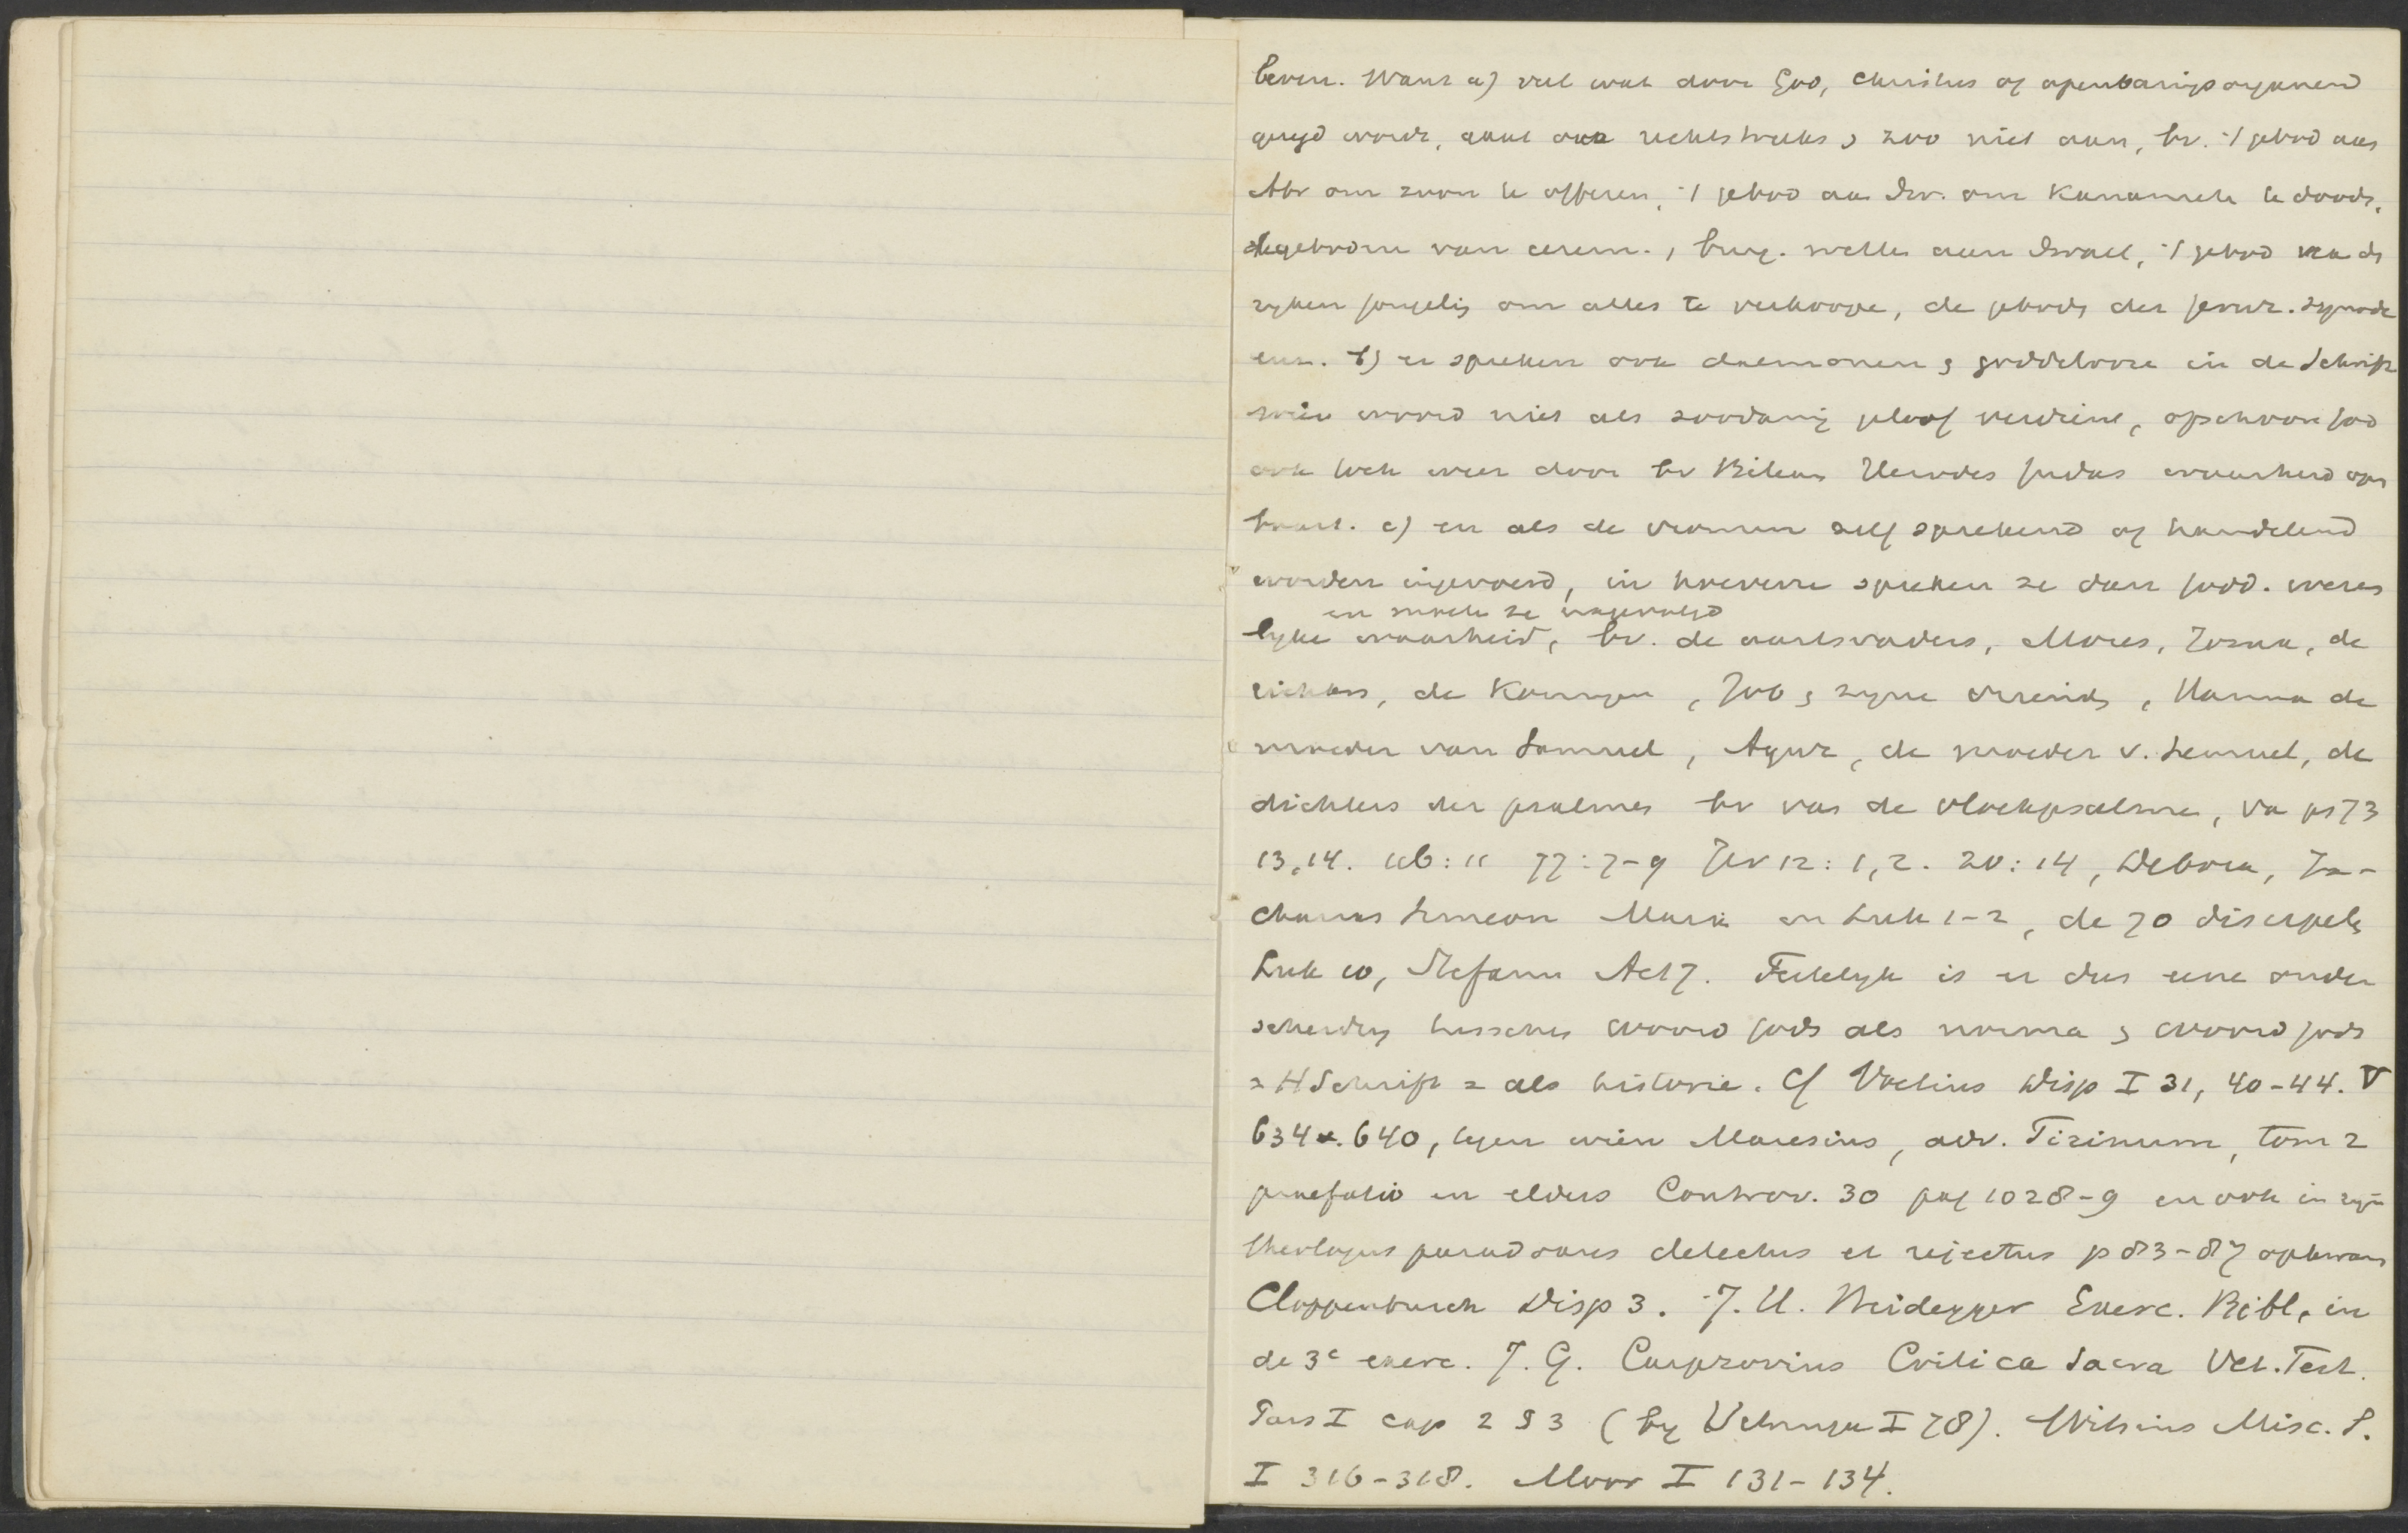 leven. Want a) veel wat door God, Christus of openbaringsorganen
gezegd wordt, gaat ons rechtstreeks zoo niet aan, bv. 't gebod aan
Abr om zoon te offeren, 't gebod aan Isr. om Kanaanieten te dooden,
de geboden van cerem., burg. wetten aan Israel, 't gebod van de
ryken jongeling om alles te verkoopen, de geboden der Jeruz. synode
enz. b) er spreken ook daemonen en goddelooze in de Schrift
wier woord niet als zoodanig geloof verdient, ofschoon God
ook toch weer door bv Bileam Herodes Judas waarheid open
baart. c) en als de vromen zelf sprekend of handelend
worden ingevoerd, in hoeverre spreken ze dan Godd. wezen
en moeten ze nagevolgd
lyke waarheid, bv. de aartsvaders, Mozes, Jozua, de
richters, de Koningen, Job en zyne vrienden, Hanna de
moeder van Samuel, Agur, de moeder v. Lemuel, de
dichters der psalmen bv van de vloekpsalmen, van ps 73
13,14. 116:11 77:7-9 Jer 12:1,2. 20:14, Debora, Za-
charias Simeon Maria in Luk 1-2, de 70 discipelen
Luk 10, Stefanus Act 7. Feitelyk is er dus eene onder
scheiding tusschen woord Gods als norma en woord Gods
= H Schrift = als historie. Cf Voetius Disp I 31, 40-44. V
634. 640, tegen wien Maresius, adv. Tirinum, tom 2
praefatio en elders Controv. 30 pag 1028-9 en ook in zyn
theologus paradoxus detectus et rejectus p 83-87 opkwam
Cloppenburch Disp 3. J. H. Heidegger Exerc. Bibl. in
de 3e exerc. J. G. Carpzovius Critica Sacra Vet. Test.
Pars I cap 2 § 3 (by Vitringa I 78). Witsius Misc. S.
I 316-318. Moor I 131-134.